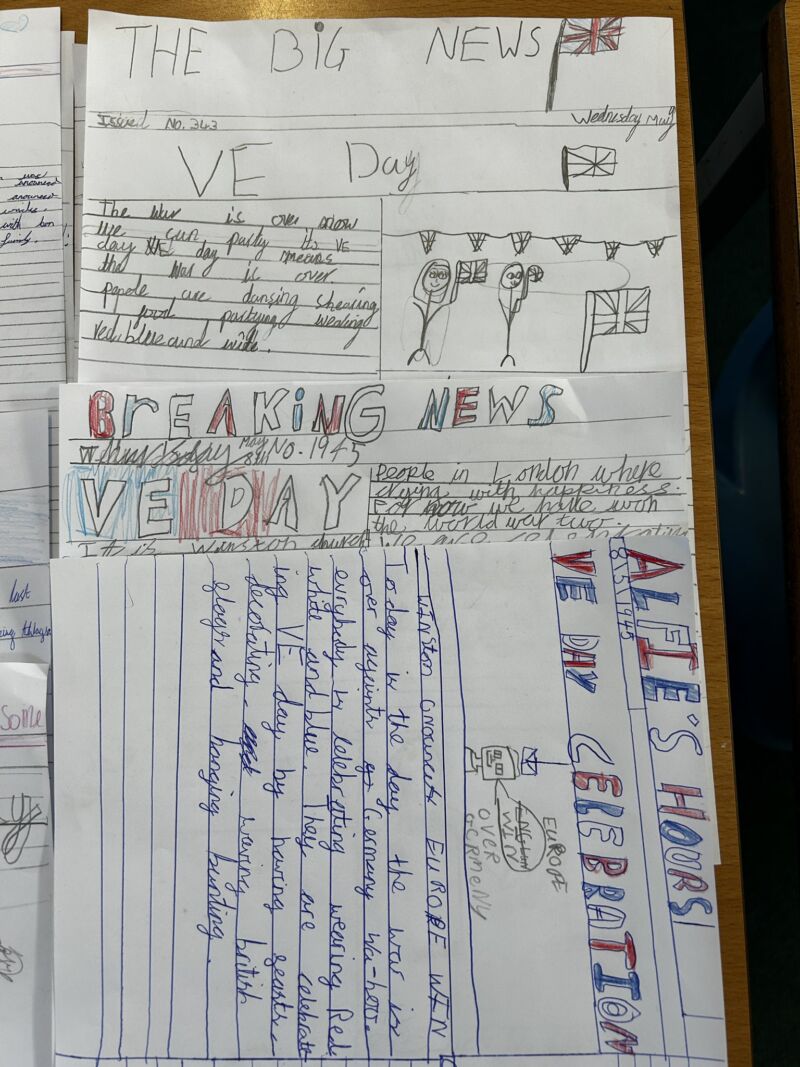 THE BiG NEWS
Issued No. 343
Wednesday May
VE Day
The war is over now
we can party its VE
day VE day means
the war is over.
people are dansing shearing
food partying wearing
red, blue and wite.
BrEAKiNG NEWS
May 8th No. 1945
VE DAY
It is winston church
People in London where
crying with happiness.
For now we have won
the world war two.
We are celebrating
ALFIE'S HOURS!
8/5/1945
VE DAY CELEBRATION
EUROPE
WIN
OVER
GERMENY
WINSton announces EUROPE WIN
Today is the day the war is
over againts Germany Wa-hoo.
evrybody is celebrating wearing Red
white and blue. They are celebrate
ing VE day by having feasts,
decorating, waving british
flags and hanging bunting.
was
announced
with
family.
last
some